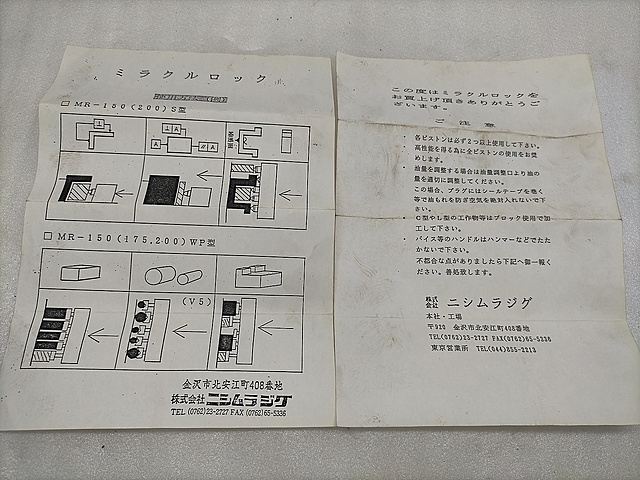 ミラクルロック
□ MR-150(200)S型
A
A
//A
□ MR-150(175,200)WP型
(V5)
金沢市北安江町408番地
株式会社 ニシムラジグ
TEL (0762)23-2727 FAX (0762)65-5336
この度はミラクルロックを
お買上げ頂きありがとうご
ざいます。
ご注意
・ 各ピストンは必ず2つ以上使用して下さい。
・ 高性能を得る為に全ピストンの使用をお奨
めします。
・ 油量を調整する場合は油量調整口より油の
量を適切に調整してください。
この場合、プラグにはシールテープを巻く
等で油もれを防ぎ空気を絶対入れないで下
さい。
・ C型やL型の工作物等はブロック使用で加
工して下さい。
・ バイス等のハンドルはハンマーなどでたた
かないで下さい。
不都合な点がありましたら下記へ御一報く
ださい。善処致します。
株式会社 ニシムラジグ
本社・工場
〒920 金沢市北安江町408番地
TEL(0762)23-2727 FAX(0762)65-5336
東京営業所 TEL(044)855-2213